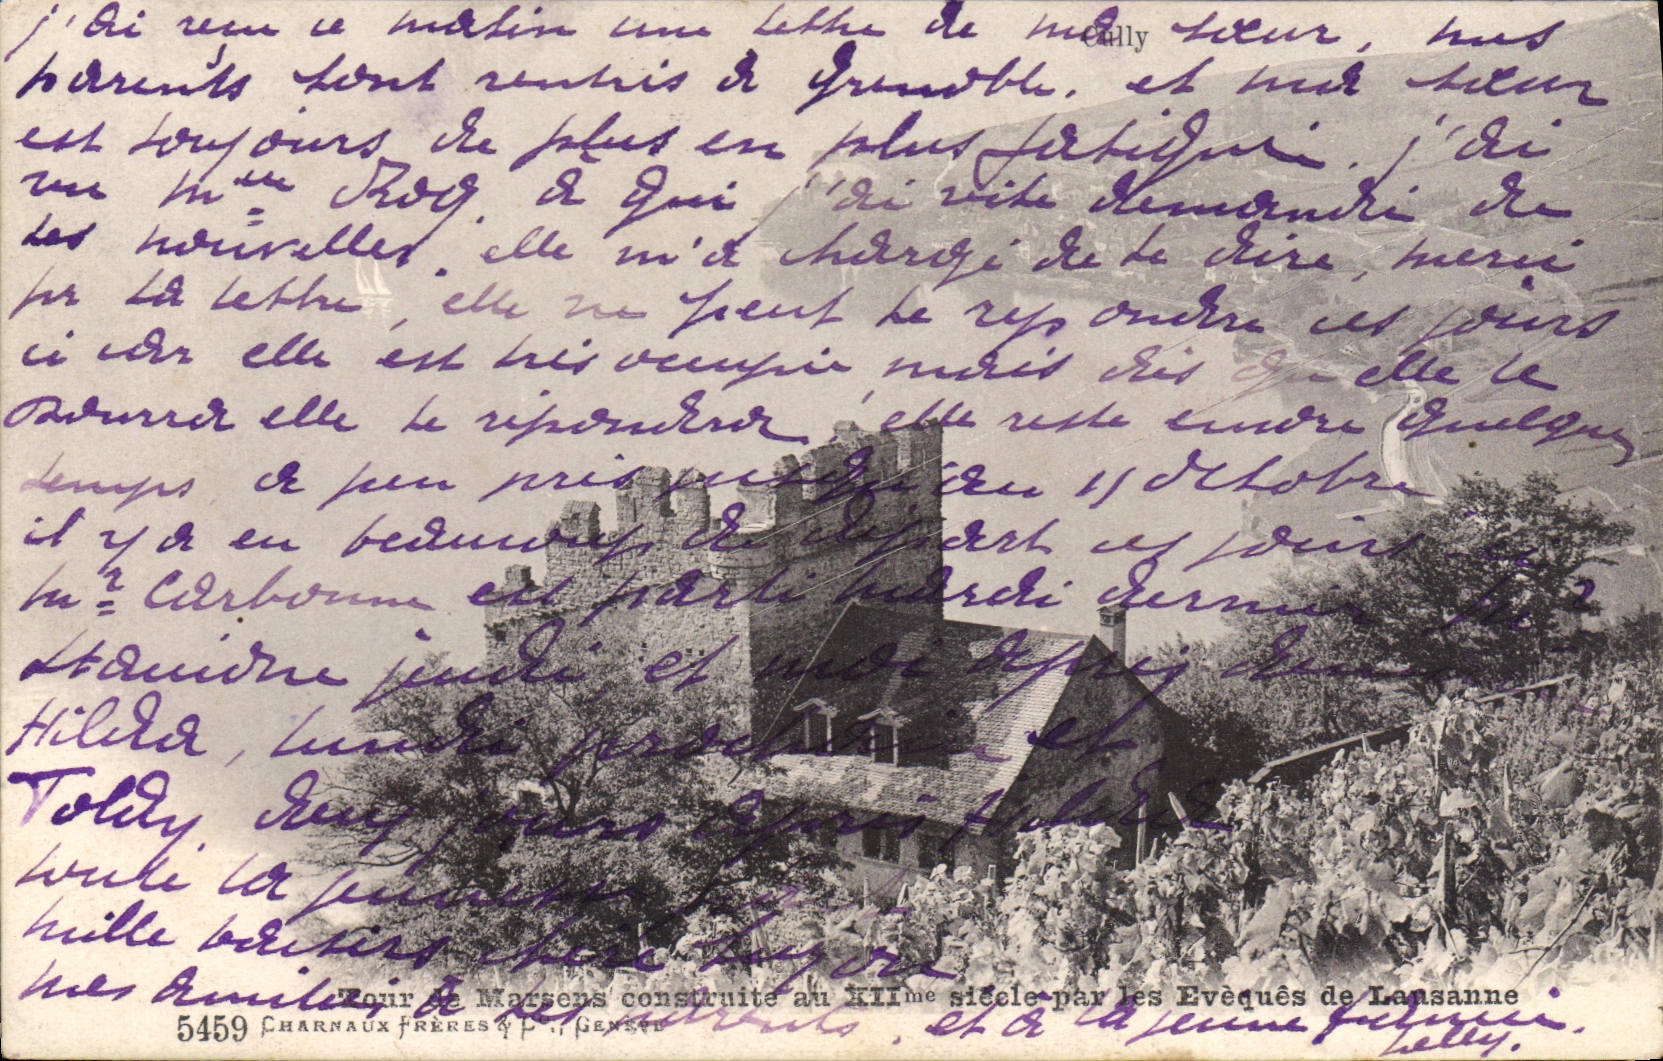 j'ai reçu ce matin une lettre de ma sœur, mes
Cully
parents sont rentrés à Grenoble. et ma sœur
est toujours de plus en plus fatiguée. j'ai
vu Mme Rog. à qui j'ai vite demandé de
tes nouvelles. elle m'a chargé de te dire, merci
pr ta lettre, elle ne peut te répondre ces jours
ci car elle est très occupée mais dès qu'elle le
pourra elle te répondra, elle reste encore quelque
temps à peu près jusqu'au 15 octobre
il y a eu beaucoup de départ ces jours ci
Mr Carbonne est parti mardi dernier
jeudi et moi après
Hilda, lundi prochain et
Toldy deux jours après Hilda
toute la jeunesse
mille baisers chère
mes amitiés à tes parents. et à la jeune
Tour de Marsens construite au XIIme siècle par les Evèques de Lausanne
5459 CHARNAUX FRÈRES & Co., GENÈVE